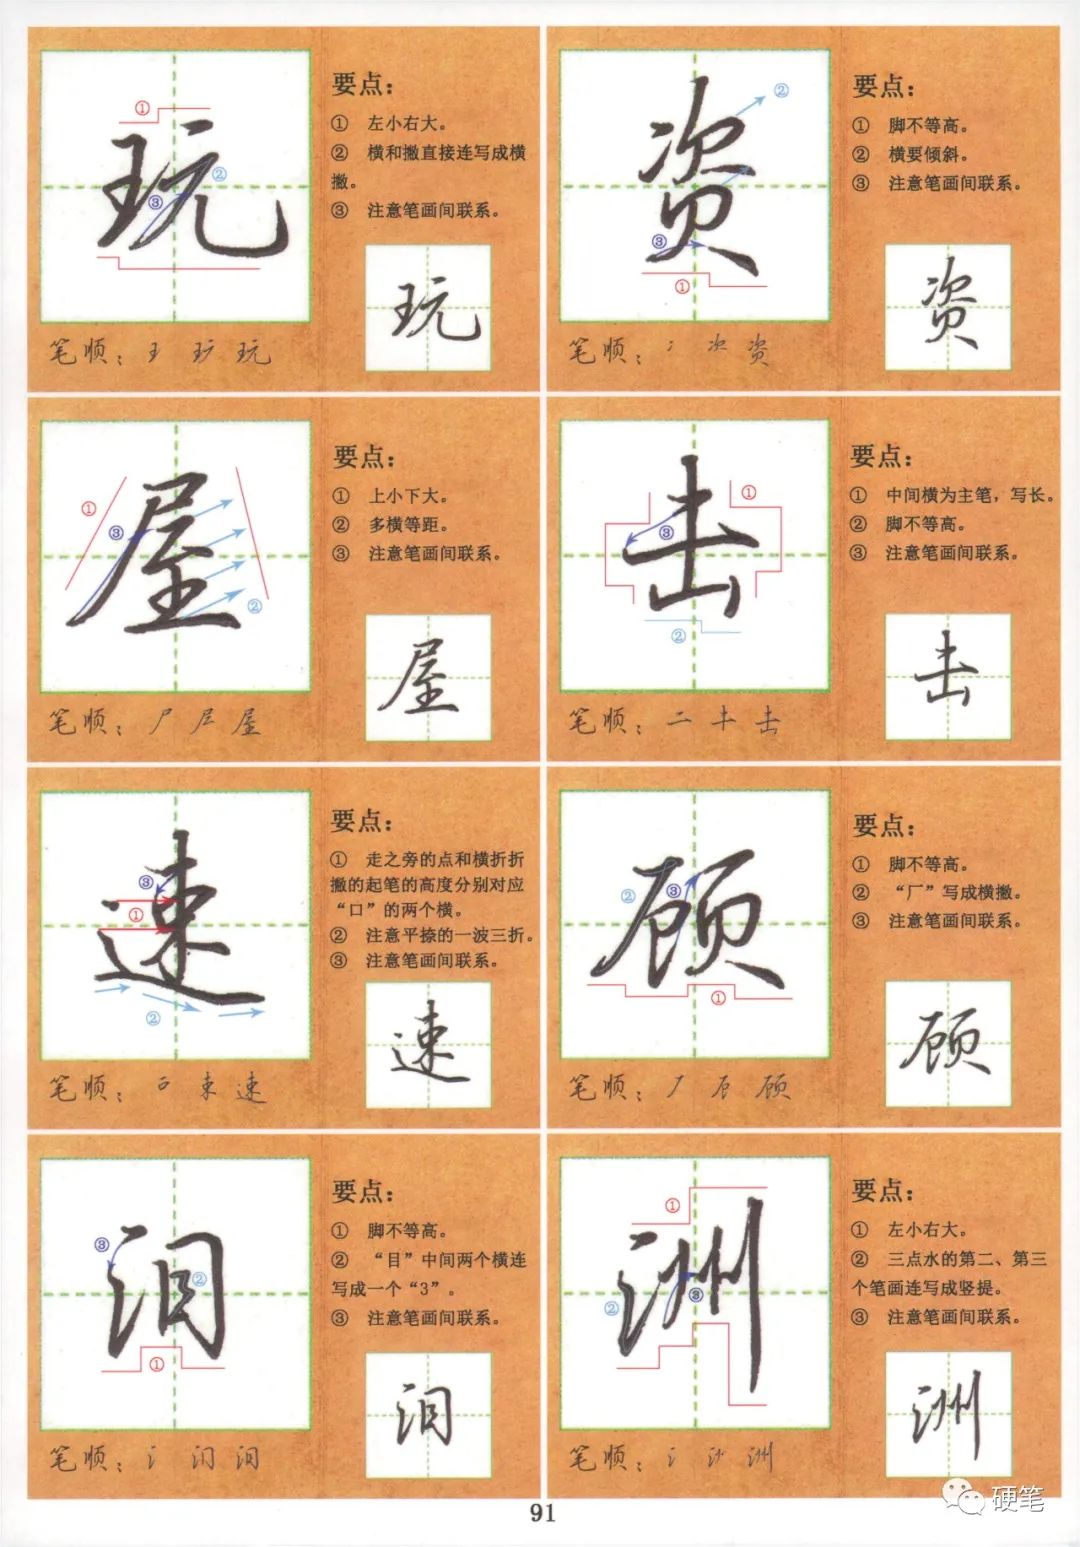 玩
要点：
① 左小右大。
② 横和撇直接连写成横
撇。
③ 注意笔画间联系。
玩
笔顺：王 玩 玩
资
要点：
① 脚不等高。
② 横要倾斜。
③ 注意笔画间联系。
资
笔顺：冫 次 资
屋
要点：
① 上小下大。
② 多横等距。
③ 注意笔画间联系。
屋
笔顺：尸 屋
击
要点：
① 中间横为主笔，写长。
② 脚不等高。
③ 注意笔画间联系。
击
笔顺：二 キ 击
速
要点：
① 走之旁的点和横折折
撇的起笔的高度分别对应
“口”的两个横。
② 注意平捺的一波三折。
③ 注意笔画间联系。
速
笔顺：束 速
顾
要点：
① 脚不等高。
② “厂”写成横撇。
③ 注意笔画间联系。
顾
笔顺：厂 厄 顾
泪
要点：
① 脚不等高。
② “目”中间两个横连
写成一个“3”。
③ 注意笔画间联系。
泪
笔顺：氵 泪
洲
要点：
① 左小右大。
② 三点水的第二、第三
个笔画连写成竖提。
③ 注意笔画间联系。
洲
笔顺：氵 洲
91
硬笔